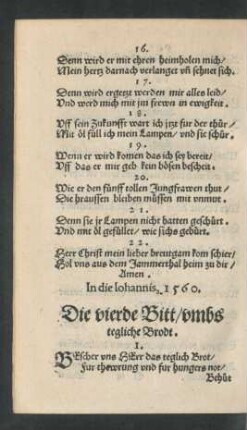 16.
Denn wird er mit ehren heimholen mich/
Mein hertz darnach verlanget vñ sehnet sich.
17.
Denn wird ergetzt werden mir alles leid/
Vnd werd mich mit jm frewn in ewigkeit.
18.
Vff sein Zukunfft wart ich jtzt fur der thür/
Mit öl füll ich mein Lampen/ vnd sie schür.
19.
Wenn er wird komen das ich sey bereit/
Vff das er mir geb kein bösen bescheit.
20.
Wie er den fünff tollen Jungfrawen thut/
Die draussen bleiben müssen mit vnmut.
21.
Denn sie jr Lampen nicht hatten geschürt.
Vnd mit öl gefüllet/ wie sichs gebürt.
22.
Herr Christ mein lieber breutgam kom schier/
Hol vns aus dem Jammerthal heim zu dir/
Amen.
In die Iohannis, 1560.
Die vierde Bitt/vmbs
tegliche Brodt.
1.
BEscher vns HErr das teglich Brot/
Fur thewrung vnd fur hungers not/
Behüt